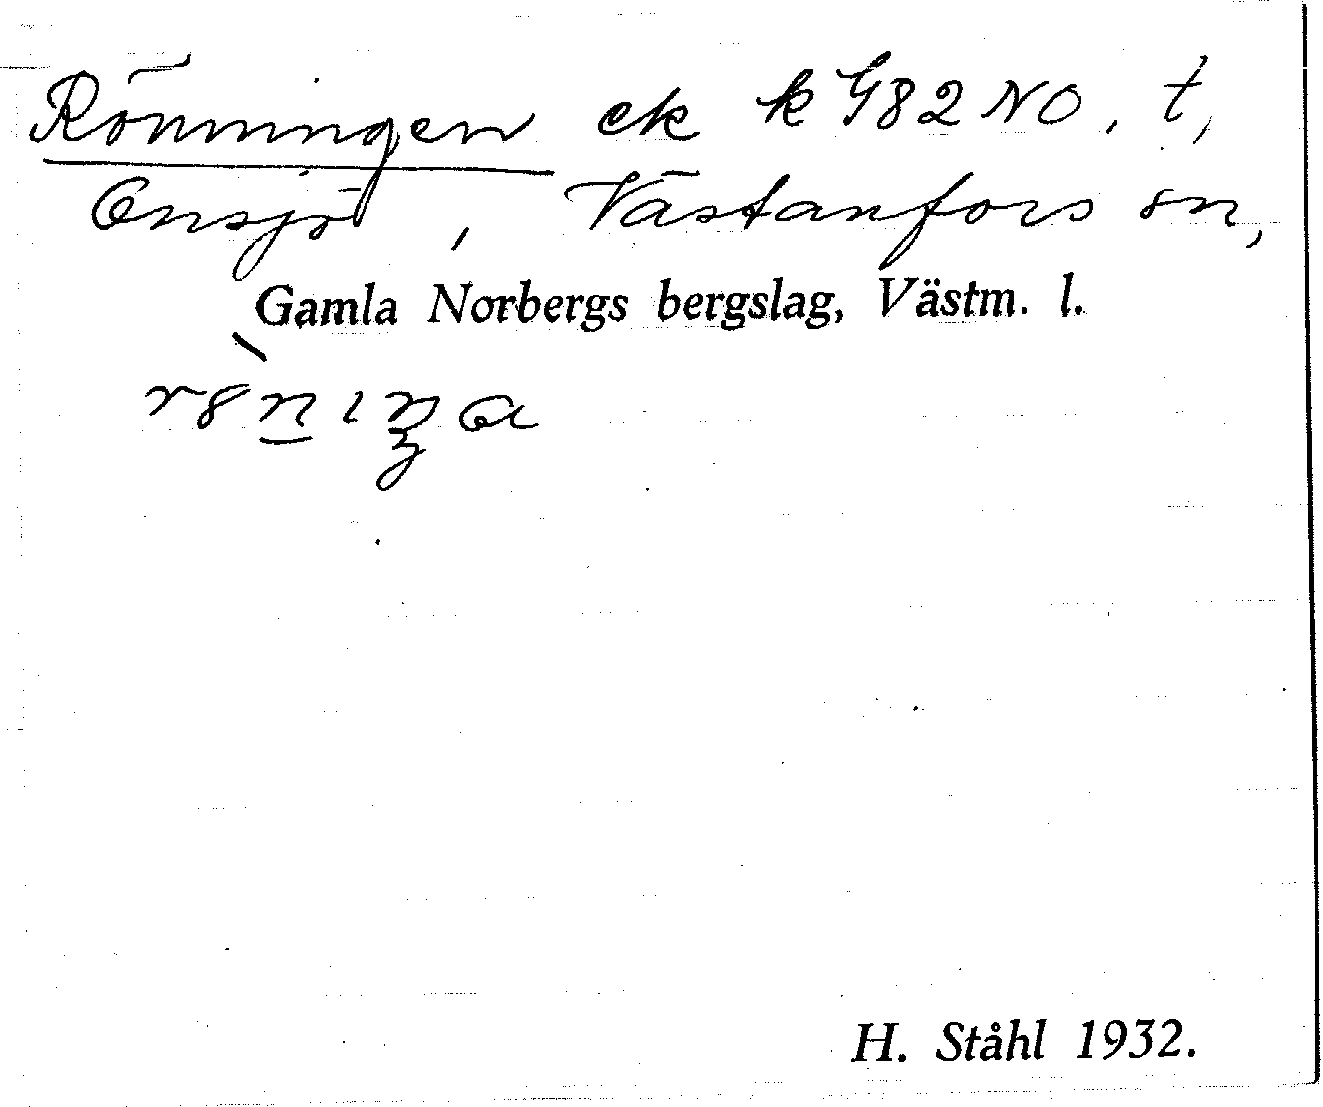 Rönningen ek k G82NO. t,
Onsjö, Västanfors sn,
Gamla Norbergs bergslag, Västm. l.
H. Ståhl 1932.